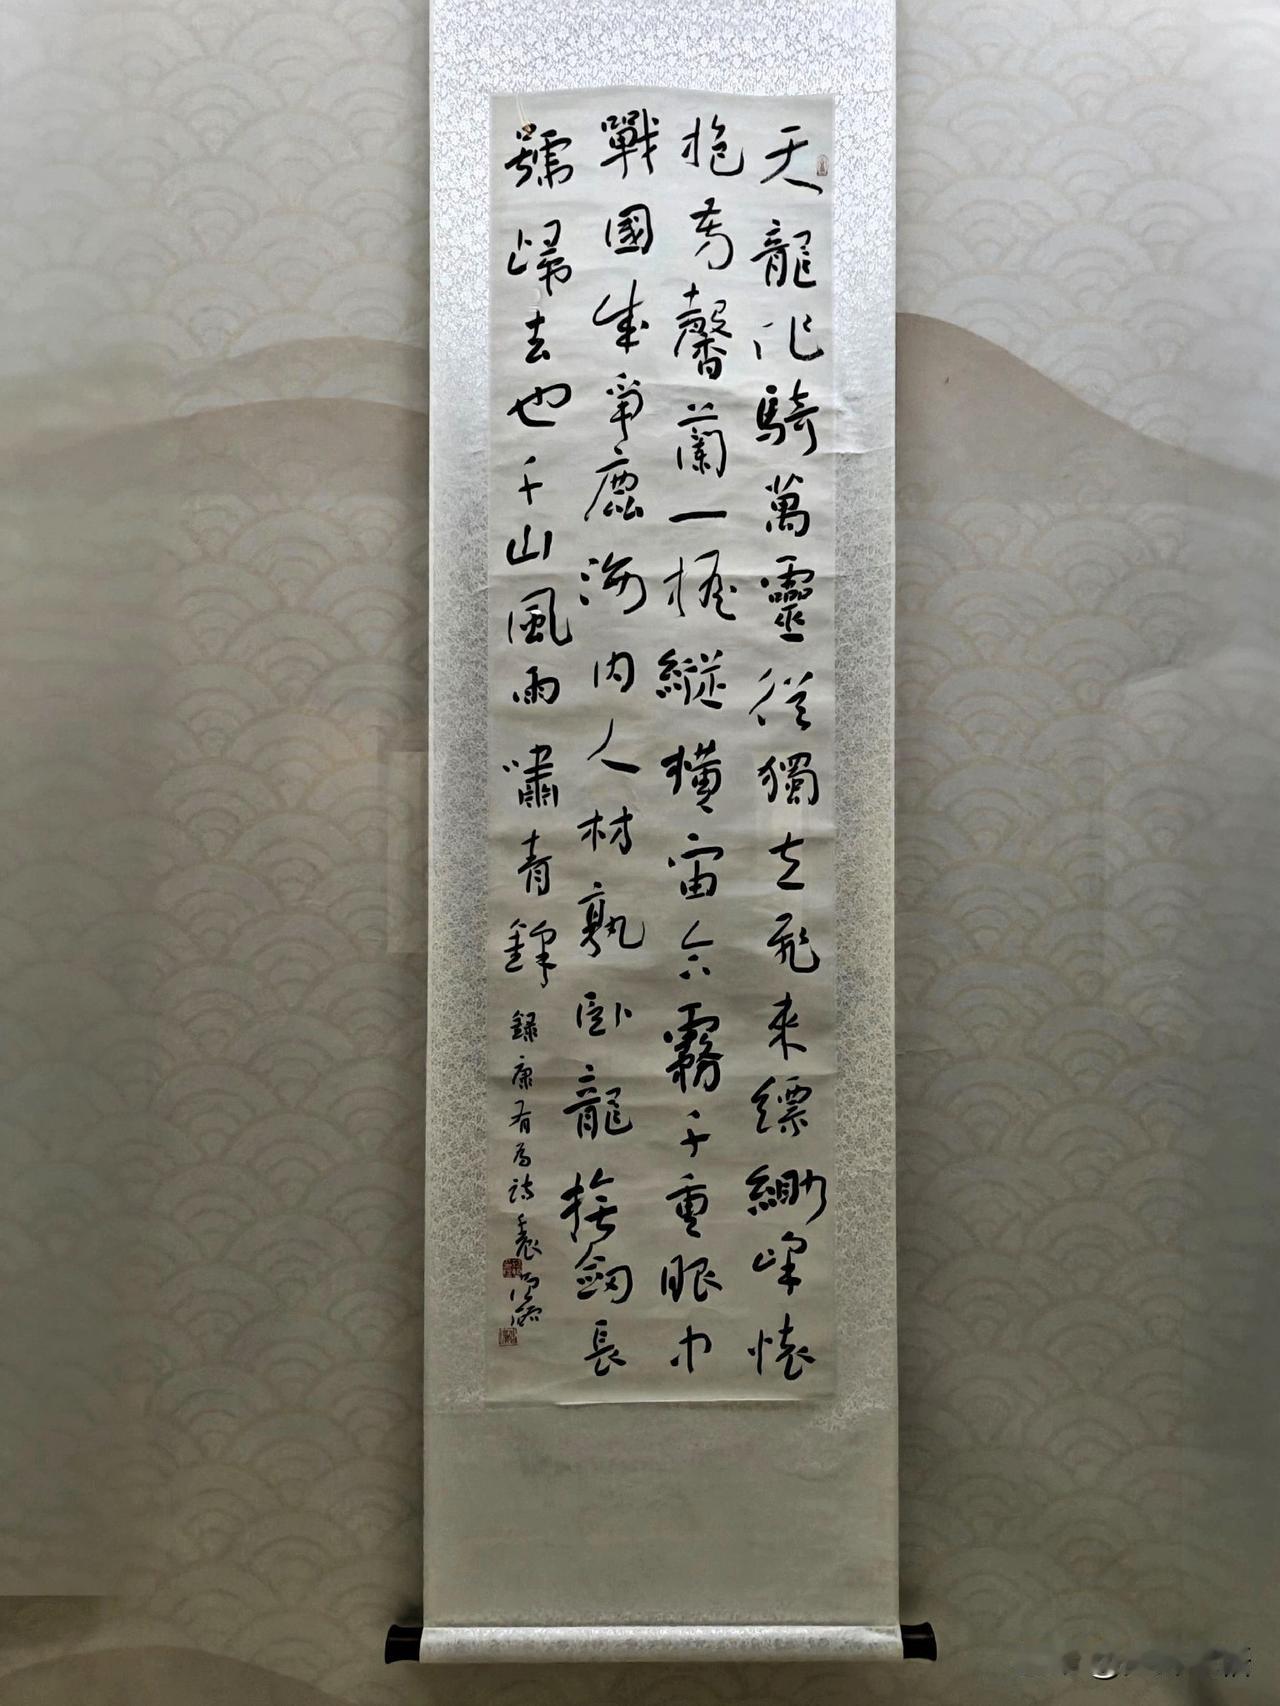 天龍作騎萬靈從獨立飛來縹緲峰懷
抱芳馨蘭一握縱橫宙合霧千重眼中
戰國成爭鹿海內人材孰卧龍撫劍長
號歸去也千山風雨嘯青鋒 錄康有為詩